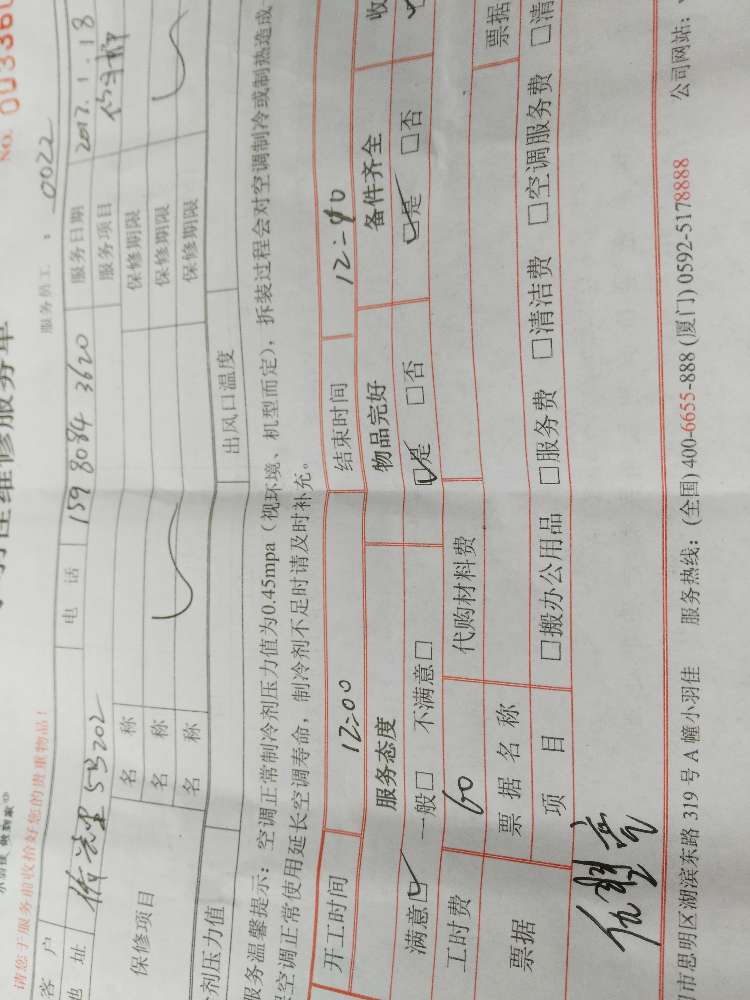 NO. 003360
服务单
服务员工：0022
请您于服务前收拾好您的贵重物品！
客 户 电 话 159 8084 3620 服务日期 2017.1.18
地 址 5号202 服务项目
保修项目 名 称 保修期限
名 称 保修期限
名 称 保修期限
剂压力值 出风口温度
服务温馨提示：空调正常制冷剂压力值为0.45mpa（视环境、机型而定），拆装过程会对空调制冷或制热造成
空调正常使用延长空调寿命，制冷剂不足时请及时补充。
开工时间 12:00 结束时间 12:40
服务态度 物品完好 备件齐全 收
满意☑ 一般□ 不满意□ ☑是 □否 ☑是 □否
工时费 60 代购材料费
票据 票据名称 票据
项 目 □搬办公用品 □服务费 □清洁费 □空调服务费 □清
市思明区湖滨东路 319 号 A 幢小羽佳 服务热线：(全国) 400-6655-888 (厦门) 0592-5178888 公司网站：